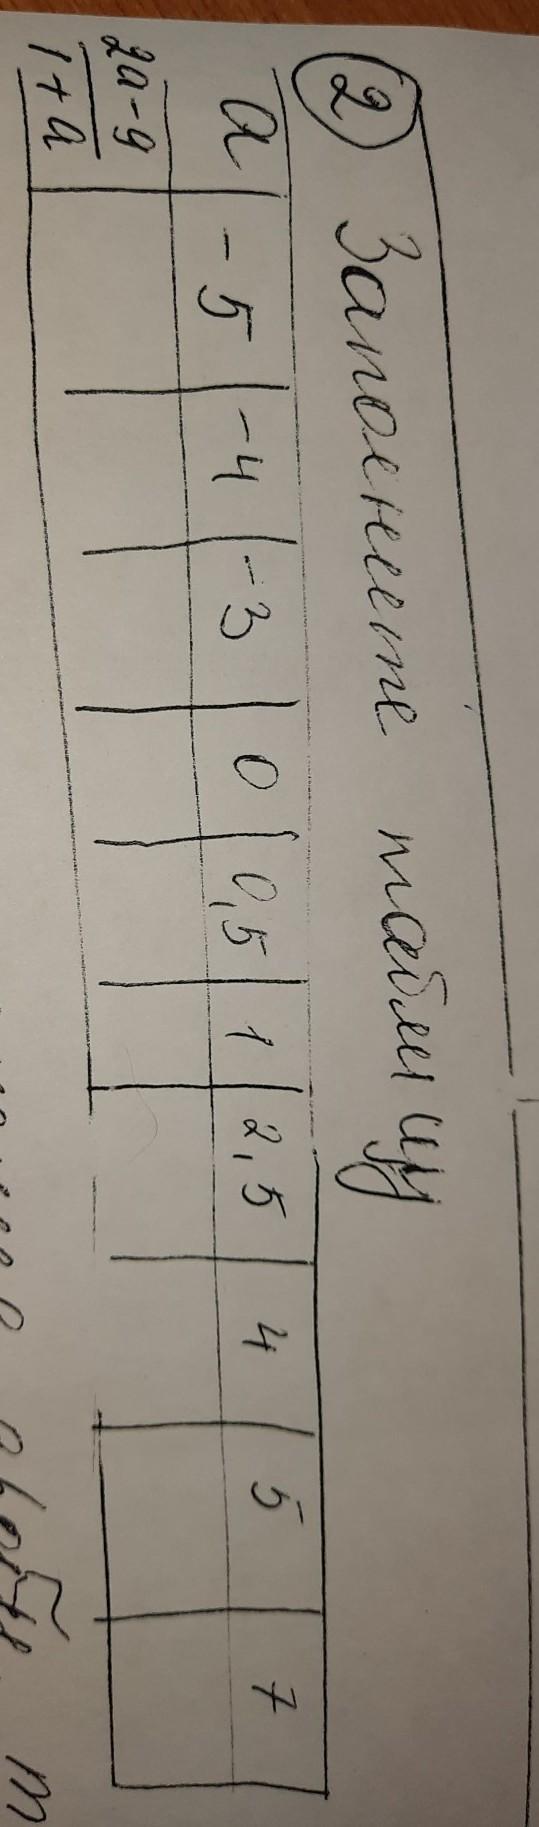 2 Заполните таблицу
a -5 -4 -3 0 0,5 1 2,5 4 5 7
2a-9
1+a